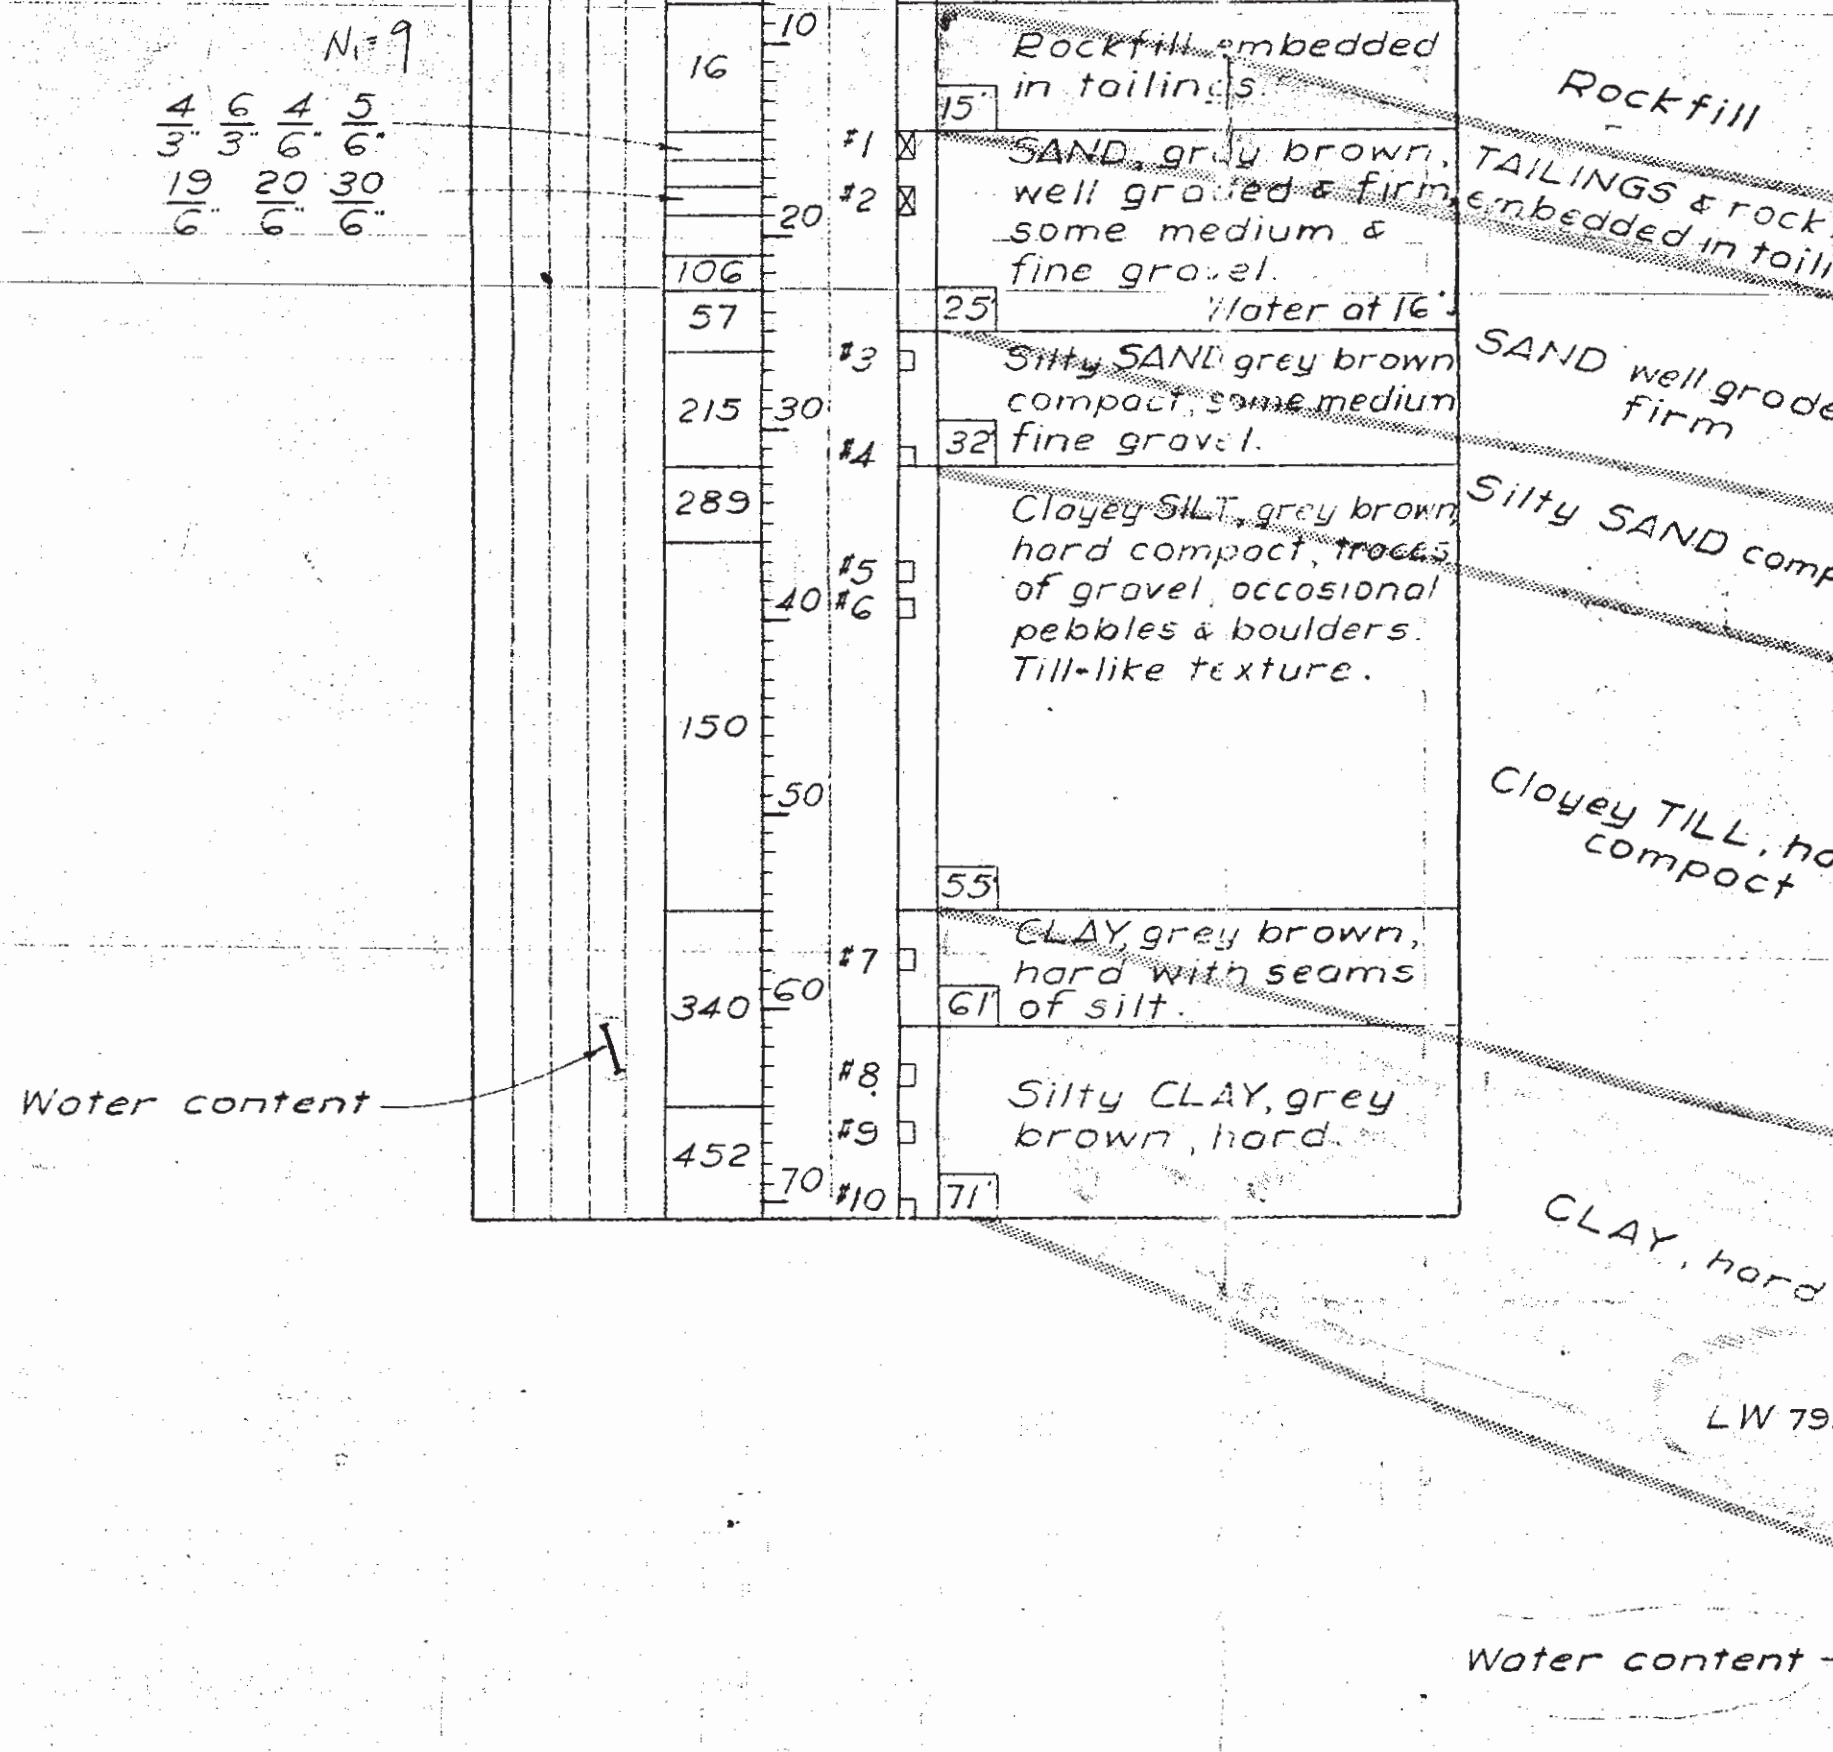 N₁=9
4/3" 6/3" 4/6" 5/6"
19/6" 20/6" 30/6"
Water content
16
106
57
215
289
150
340
452
10
20
30
40
50
60
70
#1
#2
#3
#4
#5
#6
#7
#8
#9
#10
Rockfill embedded
in tailings.
15'
SAND, gray brown,
well graded & firm,
some medium &
fine gravel.
Water at 16'.
25'
Silty SAND grey brown
compact, some medium
fine gravel.
32'
Clayey SILT, grey brown,
hard compact, traces
of gravel, occasional
pebbles & boulders.
Till-like texture.
55'
CLAY, grey brown,
hard with seams
of silt.
61'
Silty CLAY, grey
brown, hard.
71'
Rockfill
TAILINGS & rock
embedded in taili
SAND well grade
firm
Silty SAND comp
Clayey TILL, ha
compact
CLAY, hard
LW 79
Water content